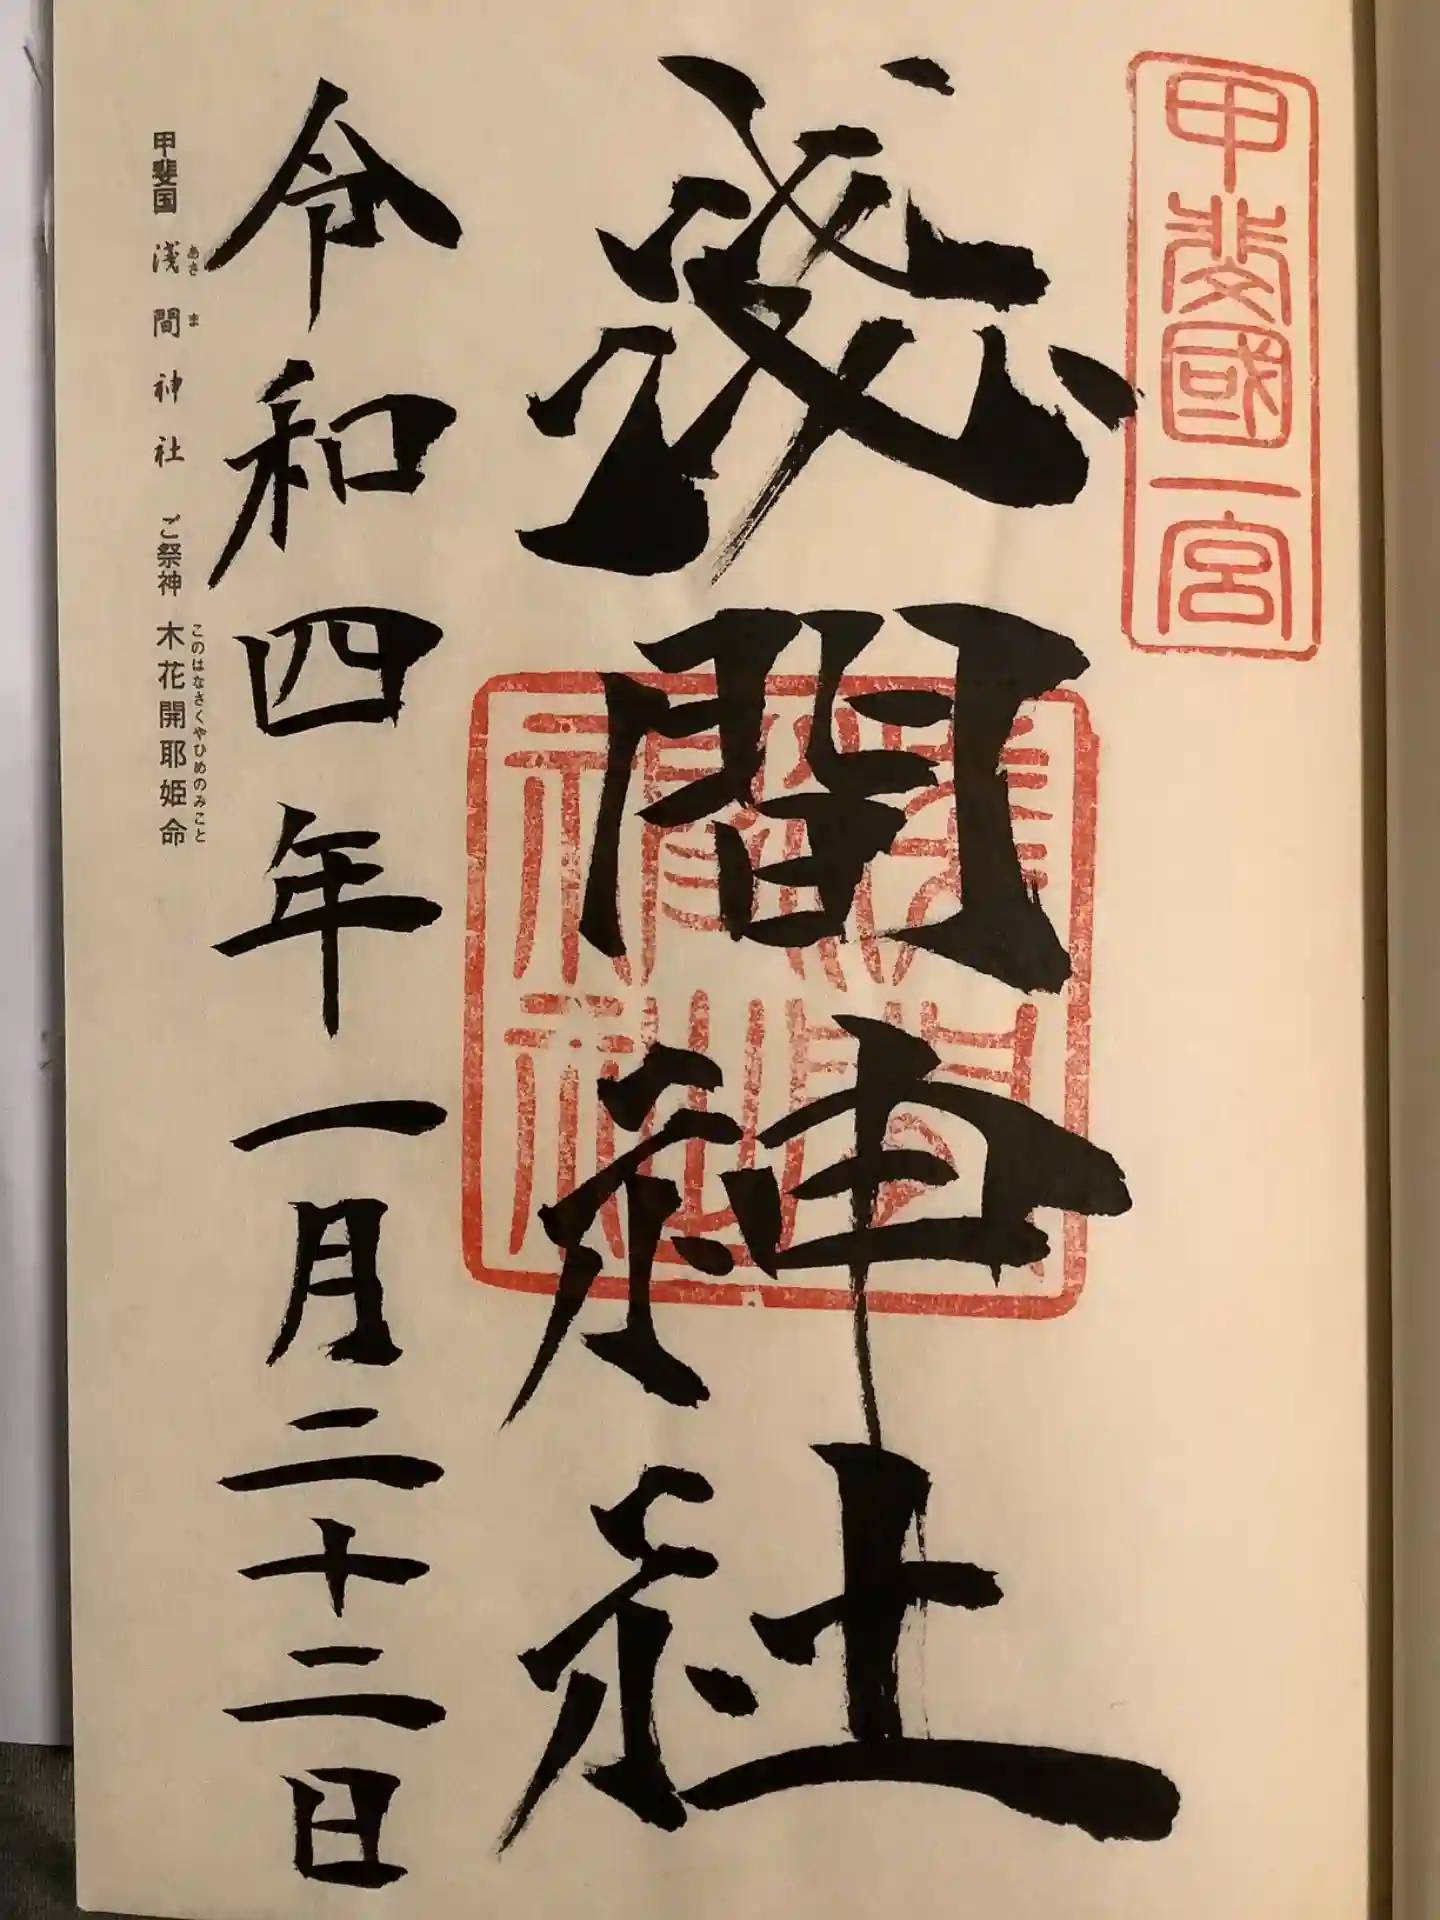 甲斐國一宮
淺間神社
淺間神社
令和四年一月二十二日
甲斐国 淺間神社 ご祭神 木花開耶姫命
あさま このはなさくやひめのみこと